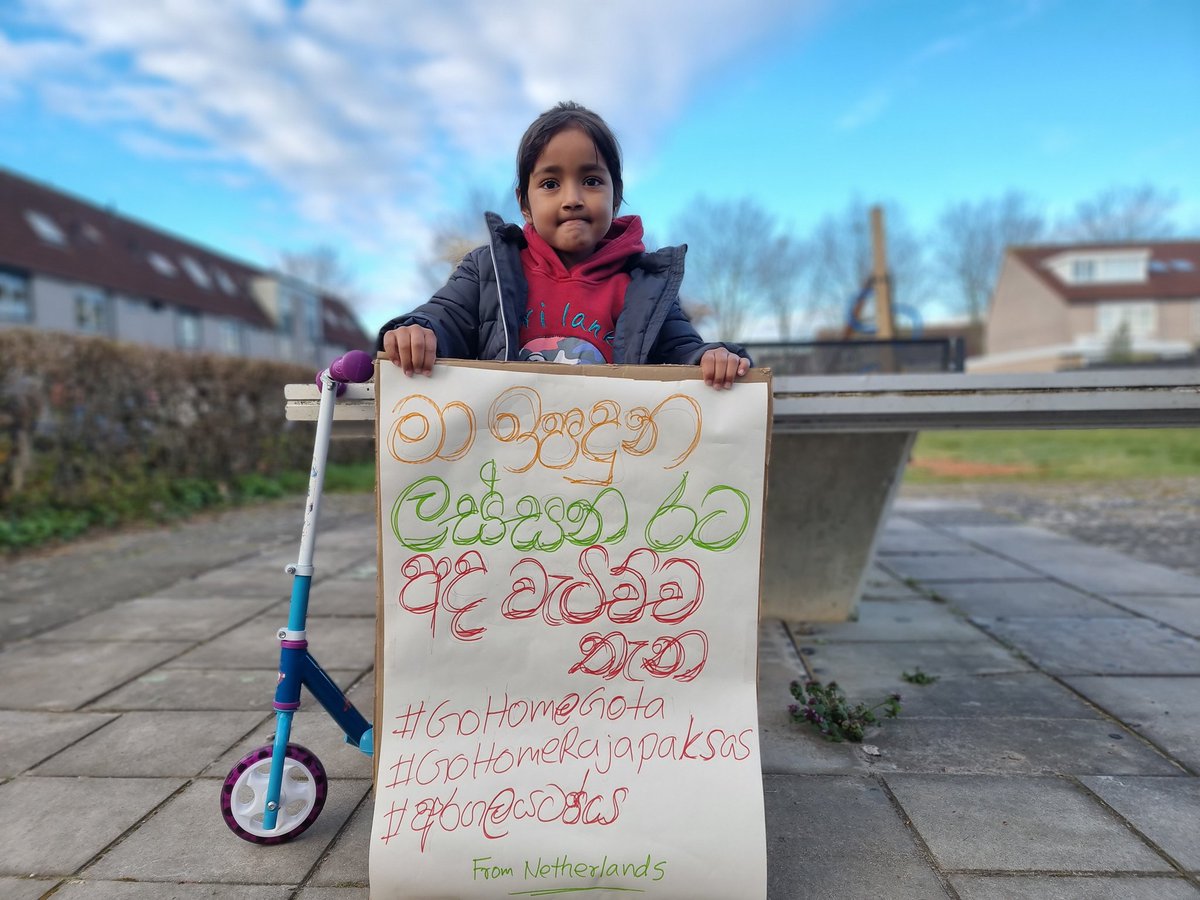 Sri lan
මා ඉපදුන
ලස්සන රට
අද වැටිච්ච
තැන
#GoHomeGota
#GoHomeRajapaksas
#අරගලයටජය
From Netherlands